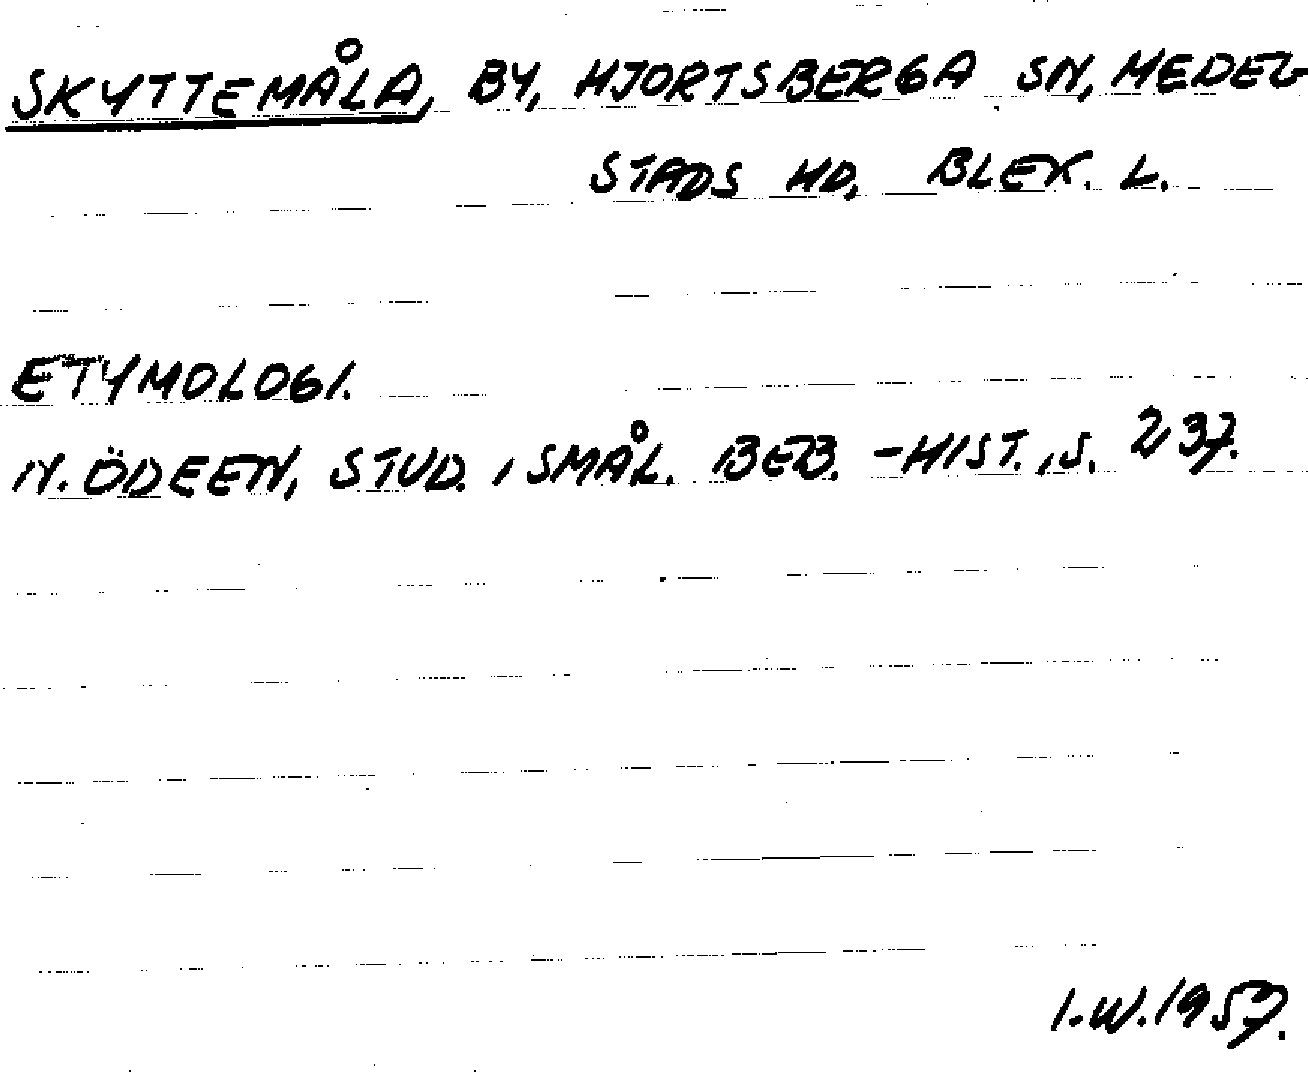 SKYTTEMÅLA, BY, HJORTSBERGA SN, MEDEL-
STADS HD, BLEK. L.
ETYMOLOGI.
N. ÖDEEN, STUD. I SMÅL. BEB.-HIST., S. 237.
I.W. 1957.